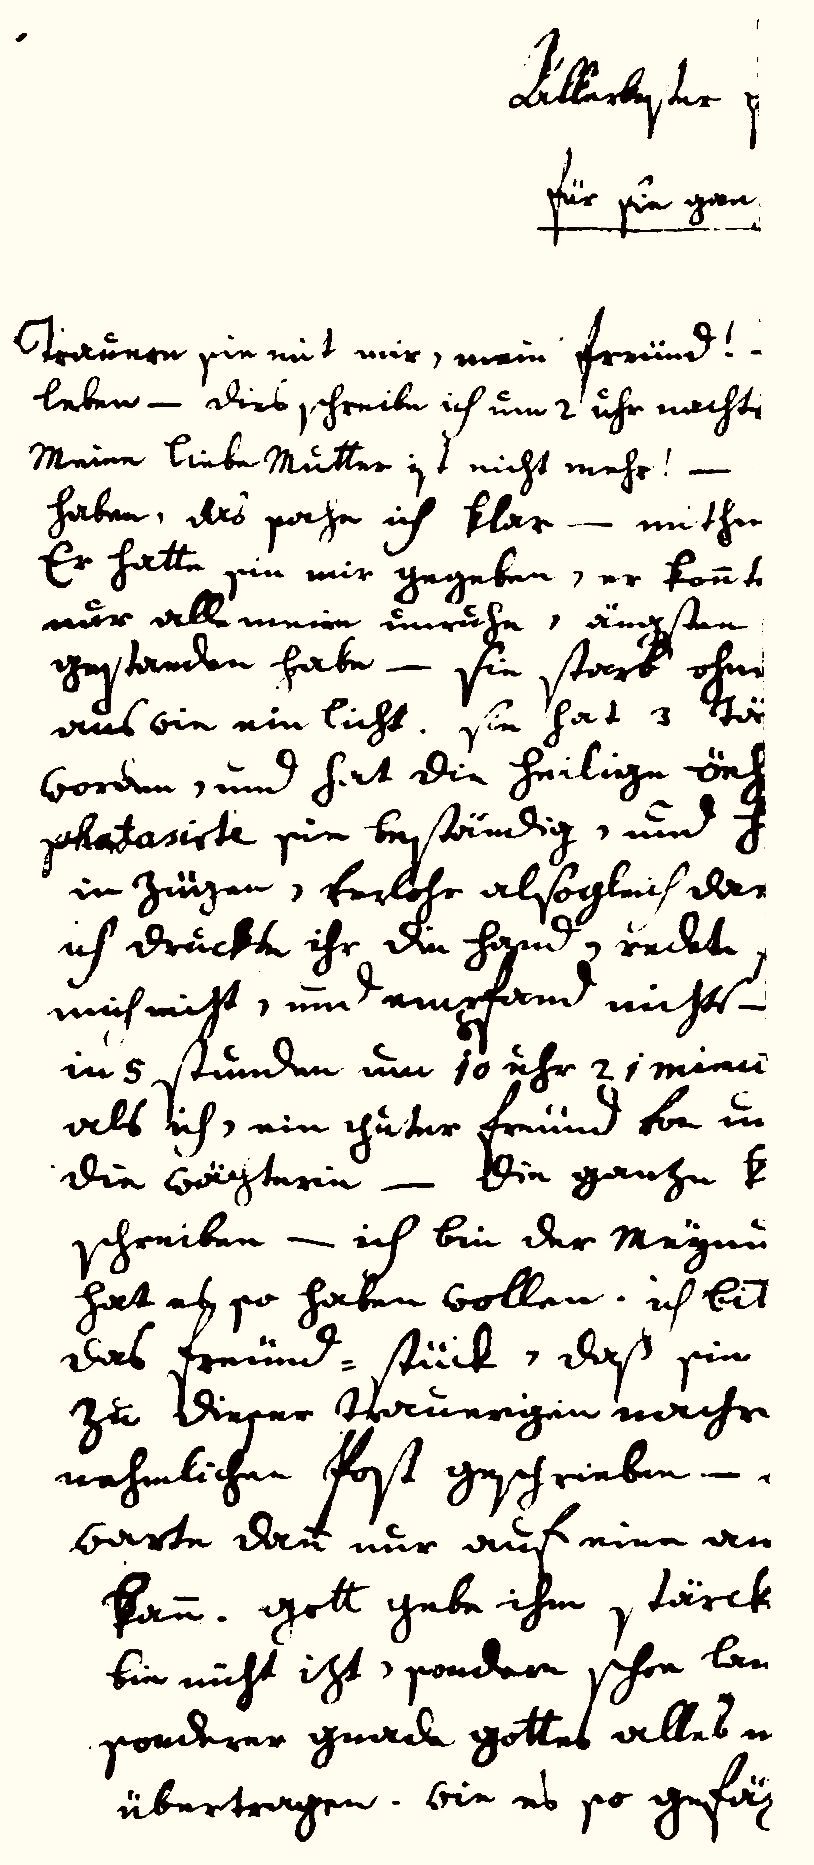 Allerbester
für sie gan
Trauern sie mit mir, mein freünd! -
leben — dies schreibe ich um 2 uhr nachts
Meine liebe Mutter ist nicht mehr! —
haben, das sahe ich klar — mithin
Er hatte sie mir gegeben, er konnte
nur alle meine unruhe, ängsten
gestanden habe — sie starb ohne
aus wie ein licht. sie hat 3 Tä
worden, und hat die heilige öeh
phatasirte sie beständig, und
in Zügen, verlohr alsogleich dar
ich drückte ihr die hand, redete
mich nicht, und empfand nichts —
in 5 stunden um 10 uhr 21 minu
als ich, ein guter freünd von un
die wächterin — die ganze k
schreiben — ich bin der Meynu
hat es so haben wollen. ich bit
das freünd=stück, daß sie
zu dieser trauerigen nachr
nehmlichen Post geschrieben —
warte dan̄ nur auf eine an
kan̄. gott gebe ihm stärck
bin nicht itzt, sondern schon lan
sonderer gnade gottes alles
übertragen. wie es so gefä